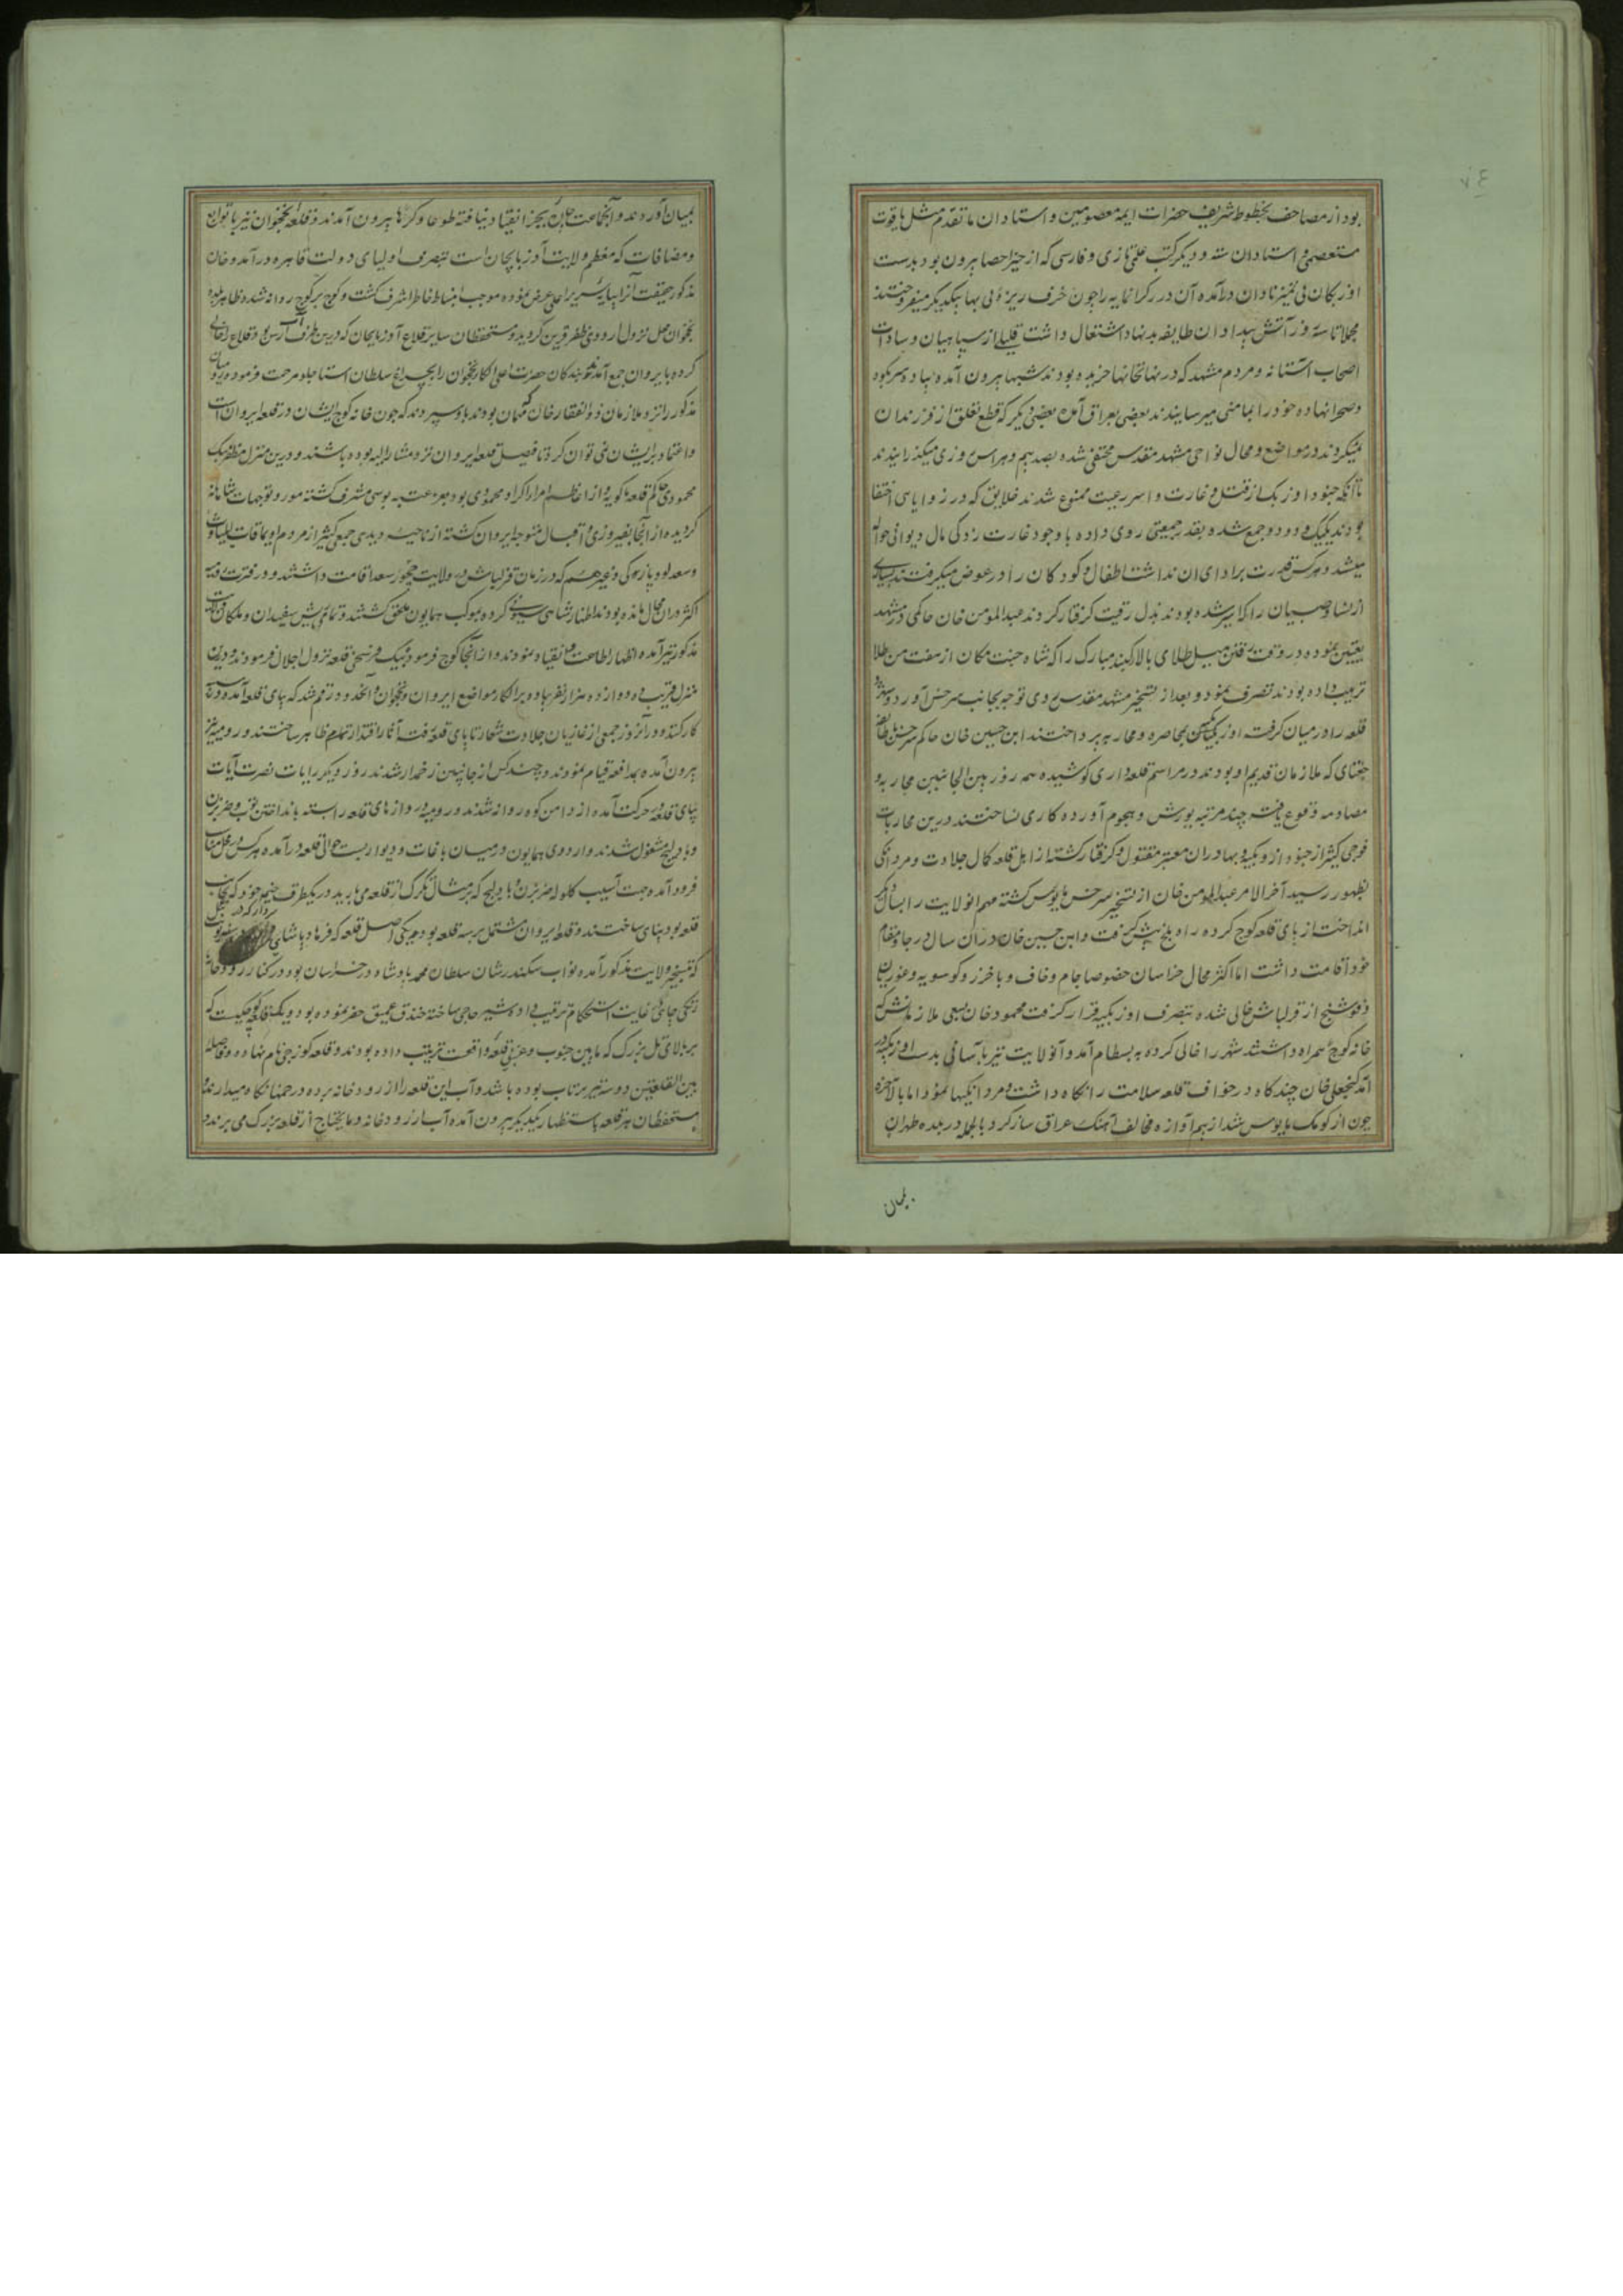 بود از مصاحف بخطوط شریف حضرات ایمهٔ معصومین و استادان ما تقدم مثل یاقوت
مستعصمی و استادان سته و دیگر کتب علمی تازی و فارسی که از حیز احصا بیرون بود بدست
اوزبکان بی تمیز نادان درآمده آن درر گرانمایه را چون خزف ریزه بی بها بیکدیگر میفروختند
مجملا تا سه روز آتش بیداد ان طایفه بد نهاد اشتغال داشت قلیلی از سپاهیان و سادات
اصحاب آستانه و مردم مشهد که در نهانخانها خزیده بودند شبها بیرون آمده پیاده سر بکوه
وصحرا نهاده خود را بمامنی میرسانیدند بعضی بعراق آمده بعضی دیگر که قطع تعلق از فرزندان
نمیکردند در مواضع و محال نواحی مشهد مقدس مختفی شده بصد بیم و هراس روزی میگذرانیدند
تا آنکه جنود اوزبک از قتل و غارت و اسر رعیت ممنوع شدند خلایق که در زوایای اختفا
بودند یکیک و دو دو جمع شده بقدر جمعیتی روی داده با وجود غارت زدگی مال دیوانی حواله
میشد و هر کس قدرت بر ادای ان نداشت اطفال و کودکان را در عوض میگرفتند بسیاری
از نسا و صبیان را که اسیر شده بودند بذل رقیت گرفتار کردند عبدالمومن خان حاکمی در مشهد
تعیین نموده در وقت رفتن میل طلای بالا گنبد مبارک را که شاه جنت مکان از هفت من طلا
ترتیب داده بودند تصرف نمود و بعد از تسخیر مشهد مقدس روی توجه بجانب سرخس آورد و
قلعه را در میان گرفت اوزبکیه بمحاصره و محاربه پرداختند ابن حسین خان حاکم سرخس
جغتای که ملازمان قدیم او بودند در مراسم قلعه داری کوشیده همه روز بین الجانبین محاربه و
مصادمه وقوع یافته چند مرتبه یورش و هجوم آورده کاری نساختند درین محاربات
فوجی کثیر از جنود اوزبکیه و بهادران معتبر مقتول و گرفتار گشته از اهل قلعه کمال جلادت و مردانگی
بظهور رسید آخر الامر عبدالمومن خان از تسخیر سرخس مایوس گشته مهم انولایت را بسال دیگر
انداخت از پای قلعه کوچ کرده راه بلخ پیش گرفت و ابن حسین خان در ان سال در جا و مقام
خود اقامت داشت اما اکثر محال خراسان خصوصا جام و خاف و باخرز و کوسویه و غوریان
و فوشنج از قزلباش خالی شده بتصرف اوزبکیه قرار گرفت محمود خان بسعی ملازمانش که
خانه کوچ همراه داشتند شهر را خالی کرده به بسطام آمد و آنولایت نیز بآسانی بدست اوزبکیه در
آمد گنجعلی خان چندگاه در خواف قلعه سلامت را نگاه داشت و مردانگیها نمود اما بالاخره
چون از کومک مایوس شد از بیم آوازه مخالف آهنگ عراق ساز کرد بالجمله در بلده طهران
بمیان
بمیان آوردند و آنجماعت چون بجز انقیاد نیافته طوعا و کرها بیرون آمدند و قلعه نخجوان نیز با توابع
ومضافات که معظم ولایت آذربایجان است بتصرف اولیای دولت قاهره درآمد و خان
مذکور حقیقت آنرا بپایه سریر اعلی عرض نموده موجب انبساط خاطر اشرف گشت و کوچ بر کوچ روانه شده ظاهر بلده
نخجوان محل نزول اردوی ظفر قرین گردید و مستحفظان سایر قلاع آذربایجان که درین طرف آب ارس بود قلاع را خالی
کرده بایروان جمع آمدند بندگان حضرت اعلی الکای نخجوان را بچراغ سلطان استاجلو مرحمت فرموده
مذکور را نزد ملازمان ذوالفقار خان بودند باو سپردند که چون خانه کوچ ایشان در قلعه ایروان است
واعتماد برایشان نمی توان کرد تا فیصل قلعه ایروان نزد مشار الیه بوده باشند و درین منزل مظفر بیک
محمودی حاکم قلعه ماکویه که از اعاظم امرا اکراد محمودی بود بعز عتبه بوسی مشرف گشته مورد توجهات شاهانه
گردیده از آنجا بفیروزی و اقبال متوجه ایروان گشته از ناحیه و بدی جمعی کثیر از مردم اویماقات
وسعدلو و پازوکی و غیرهم که در زمان قزلباش در ولایت چخور سعد اقامت داشتند و در فترت رومیه
اکثر در ان محال مانده بودند اظهار شاهی سیونی کرده بموکب همایون ملحق گشتند و تمامی ریش سفیدان و ملکان
مذکور نیز آمده اظهار اطاعت و انقیاد نمودند و از آنجا کوچ فرموده بیک فرسخی قلعه نزول اجلال فرمودند و درین
منزل قریب ده دوازده هزار نفر پیاده بر الکا و مواضع ایروان و نخجوان و آنحدود رقم شد که بپای قلعه آمده
کار کنند و در آنروز جمعی از غازیان جلادت شعار تا پای قلعه رفته آثار اقتدار تمام ظاهر ساختند و رومیه نیز
بیرون آمده بمدافعه قیام نمودند و چند کس از جانبین زخمدار شدند روز دیگر رایات نصرت آیات
بپای قلعه در حرکت آمده از دامن کوه روانه شدند و رومیه در دروازهای قلعه را بسته بانداختن توپ و ضربزن
وبادلیج مشغول شدند و اردوی همایون در میان باغات و دیوار بست حوالی قلعه درآمده هر کس در محل مناسب
فرود آمده جهت آسیب گلوله ضربزن و بادلیج که بر مثال تگرگ از قلعه می بارید در یکطرف خیمه خود که بجانب
قلعه بود پناهی ساختند و قلعه ایروان مشتمل بر سه قلعه بود یکی اصل قلعه که فرهاد پاشای
که تسخیر ولایت مذکور آمده نواب سکندر شان سلطان محمد پادشاه در خراسان بود در کنار رودخانه
زنگی جای در غایت استحکام ترتیب داده و شیر حاجی ساخته خندق عمیق حفر نموده بود و یک قلعه کوچکیست که
بر بالای تل بزرگ که مابین جنوب و غربی قلعه واقعست ترتیب داده بودند و قلعه کوزچی نام نهاده و فاصله
بین القلعتین دو سه تیر پرتاب بوده باشد و آب این قلعه را از رودخانه برده در خمها نگاه میدارند و
مستحفظان هر قلعه باستظهار یکدیگر بیرون آمده آب از رودخانه و مایحتاج از قلعه بزرگ می برند و